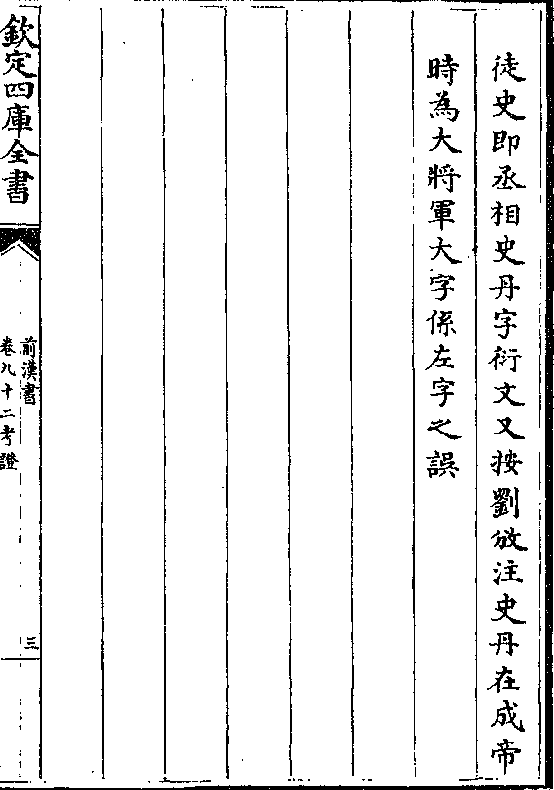 徒史即丞相史丹字衍文又按劉攽注史丹在成帝
時為大將軍大字係左字之誤
欽定四庫全書
前漢書
卷九十二考證
三